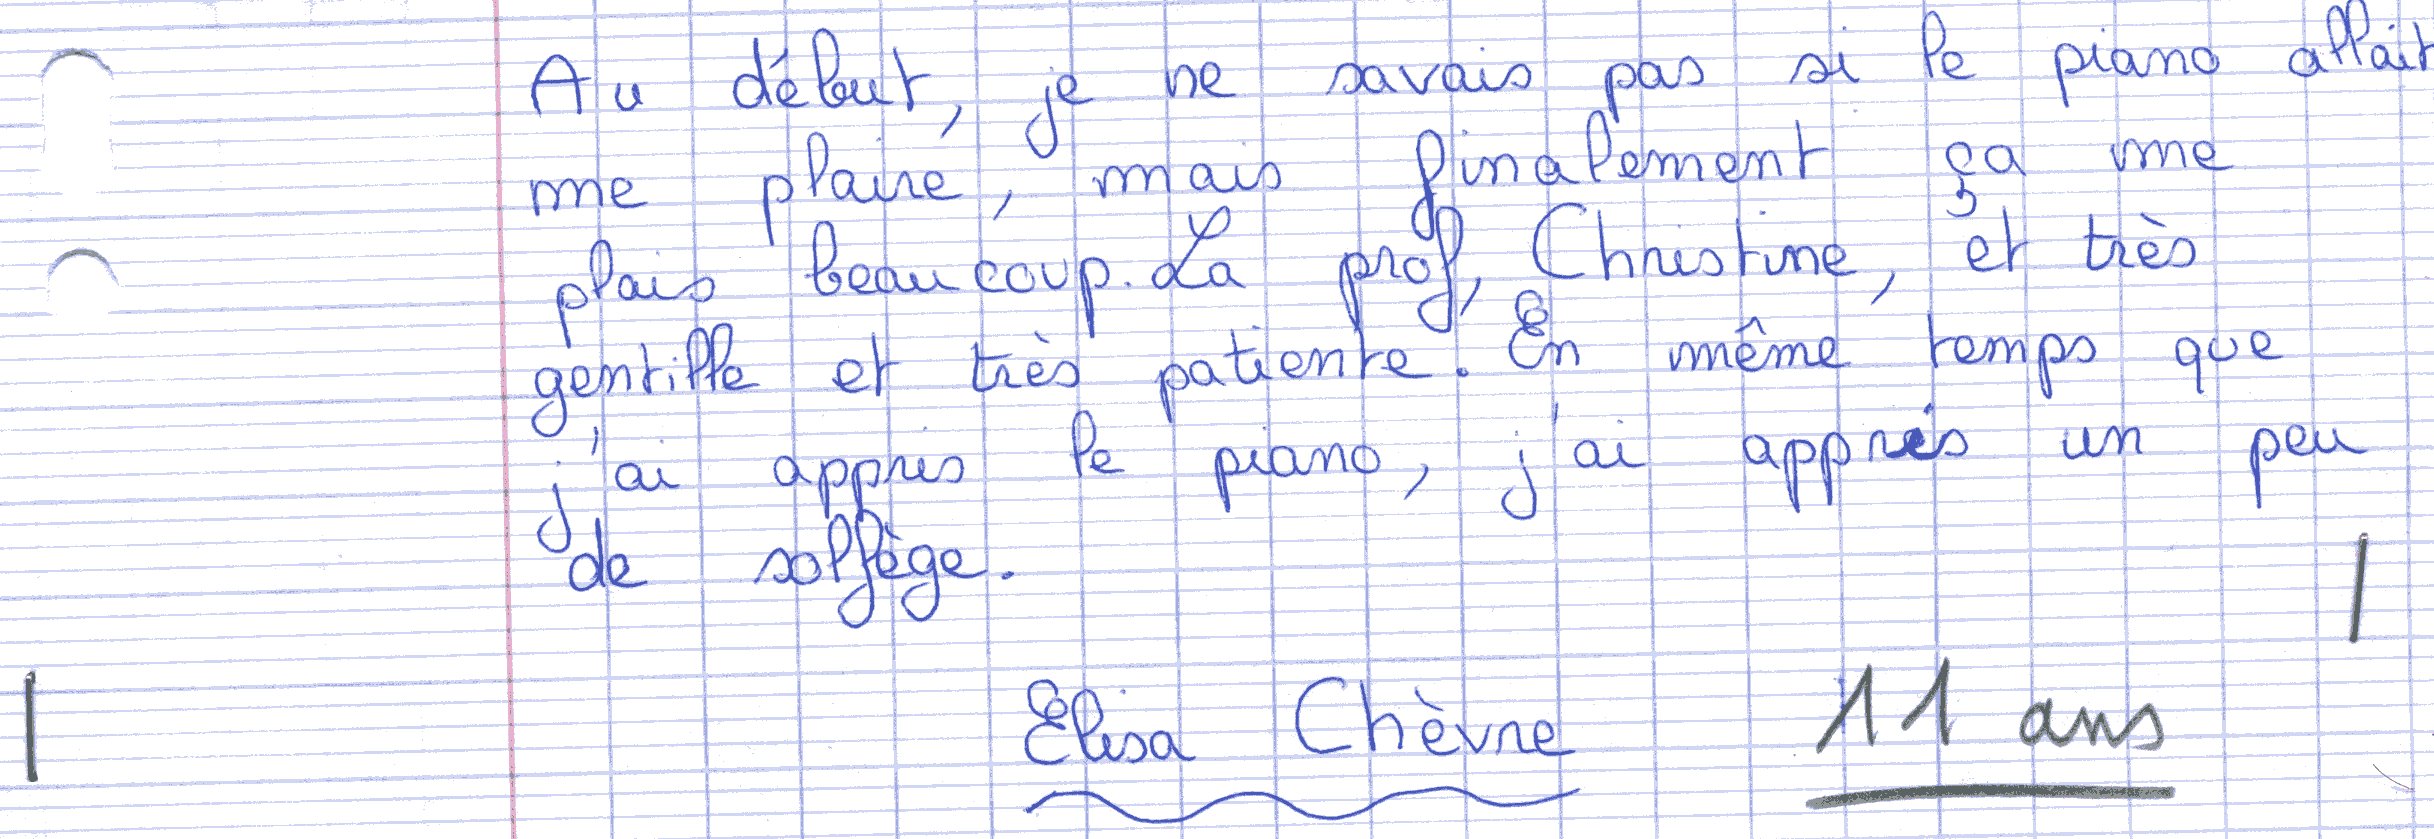 Au début, je ne savais pas si le piano allait
me plaire, mais finalement ça me
plais beaucoup. La prof, Christine, et très
gentille et très patiente. En même temps que
j'ai appris le piano, j'ai appris un peu
de solfège.
Elisa Chèvre 11 ans